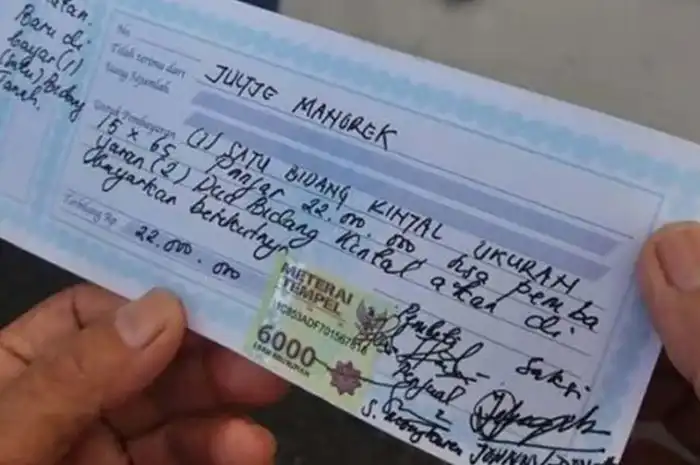 atan.
Baru di
bayar (1)
(satu) Bidang
Tanah.
No.
Telah terima dari JULTJE MANOREK
Uang Sejumlah
Untuk Pembayaran (1) SATU BIDANG KINTAL UKURAN
15 x 65 Panjar 22.000.000, sisa pemba
yaran (2) Dua Bidang Kintal akan di
bayarkan berikutnya
Terbilang Rp. 22.000.000
METERAI
TEMPEL
6000
ENAM RIBU RUPIAH
Pembeli Saksi
Penjual